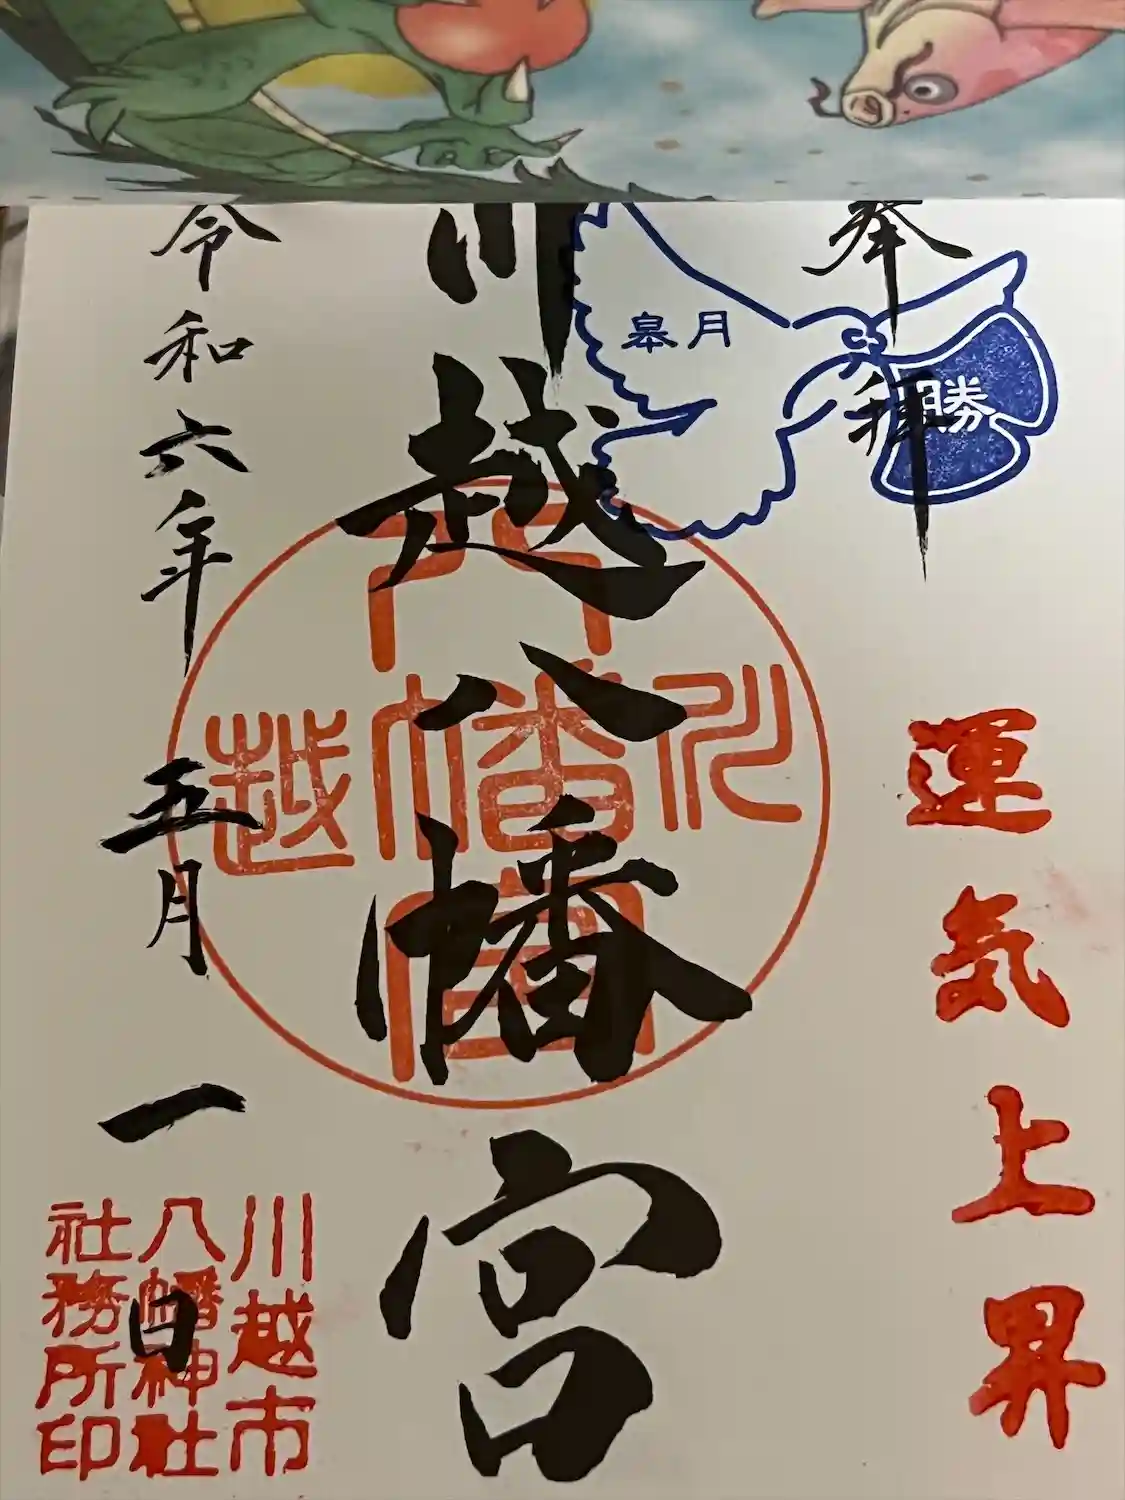 奉拝
皐月
勝
運気上昇
川越八幡宮
川越
八幡宮
令和六年
五月
一日
川越市
八幡神社
社務所印